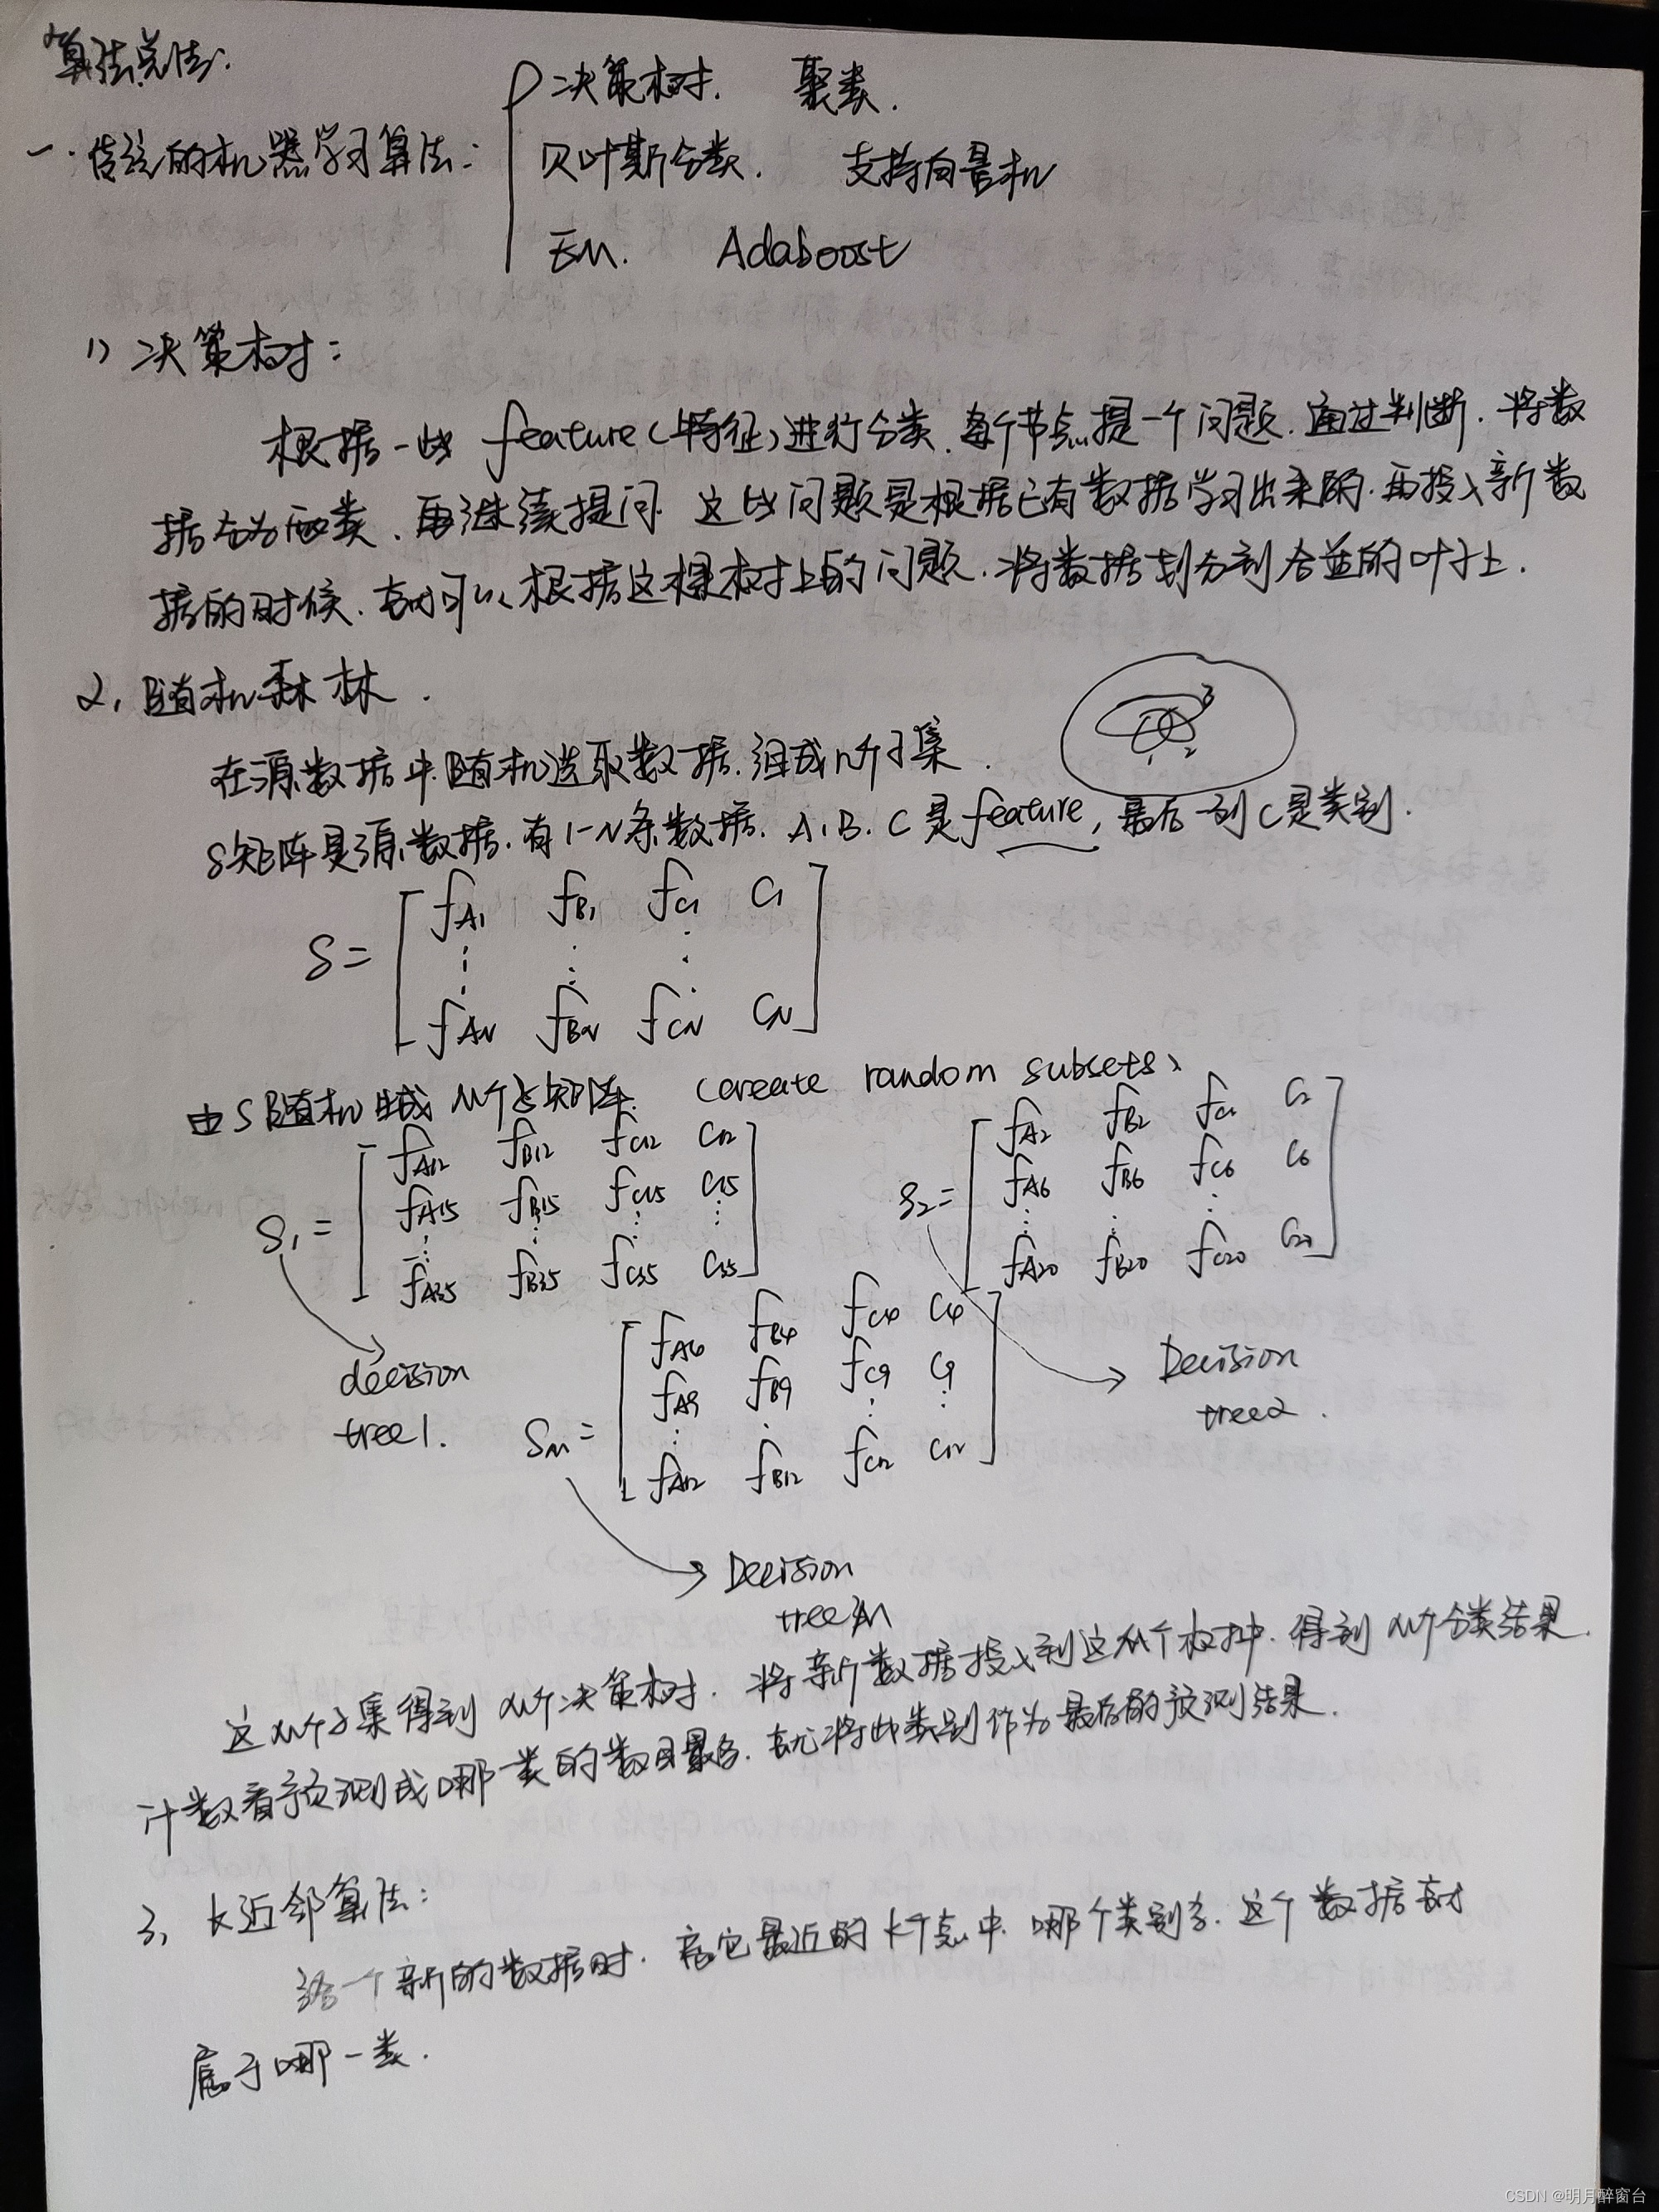 算法总法:
一. 传统的机器学习算法:
决策树. 聚类.
贝叶斯分类. 支持向量机
EM. Adaboost
1) 决策树:
根据一些 feature(特征)进行分类, 每个节点提一个问题, 通过判断, 将数
据分为两类, 再继续提问. 这些问题是根据已有数据学习出来的, 再投入新数
据的时候, 就可以根据这棵树上的问题, 将数据划分到合适的叶子上.
2, 随机森林.
3
1 2
在源数据中随机选取数据, 组成n个子集.
S矩阵是源数据, 有1-N条数据. A, B, C 是feature, 最后一列C是类别.
S= [ fA1 fB1 fC1 C1
fAN fBN fCN CN ]
由S随机生成 M个子矩阵. create random subsets
S1= [ fA12 fB12 fC12 C12
fA15 fB15 fC15 C15
fA35 fB35 fC35 C35 ]
S2= [ fA2 fB2 fC2 C2
fA6 fB6 fC6 C6
fA20 fB20 fC20 C20 ]
decision
tree1.
SM= [ fA4 fB4 fC4 C4
fA9 fB9 fC9 C9
fA12 fB12 fC12 C12 ]
Decision
tree2.
Decision
treeM
这M个子集得到 M个决策树, 将新数据投入到这M个树中, 得到 M个分类结果.
计数看预测成哪一类的数目最多, 就将此类别作为最后的预测结果.
3, k近邻算法:
给一个新的数据时, 离它最近的 k个点中, 哪个类别多, 这个数据就
属于哪一类.
CSDN @明月醉窗台